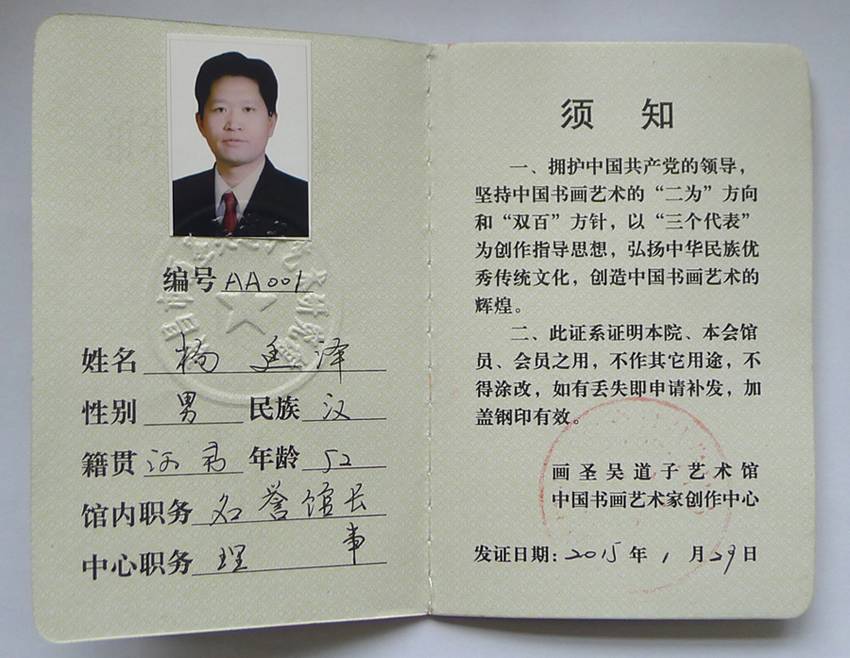 编号 AA001
姓名 杨廷泽
性别 男 民族 汉
籍贯 河南 年龄 52
馆内职务 名誉馆长
中心职务 理事
须 知
一、拥护中国共产党的领导，
坚持中国书画艺术的“二为”方向
和“双百”方针，以“三个代表”
为创作指导思想，弘扬中华民族优
秀传统文化，创造中国书画艺术的
辉煌。
二、此证系证明本院、本会馆
员、会员之用，不作其它用途，不
得涂改，如有丢失即申请补发，加
盖钢印有效。
画圣吴道子艺术馆
中国书画艺术家创作中心
发证日期：2015年1月29日